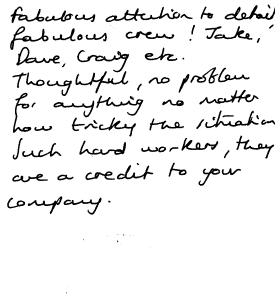 fabulous attention to detail
fabulous crew! Jake,
Dave, Craig etc.
Thoughtful, no problem
for anything no matter
how tricky the situation
Such hard workers, they
are a credit to your
company.